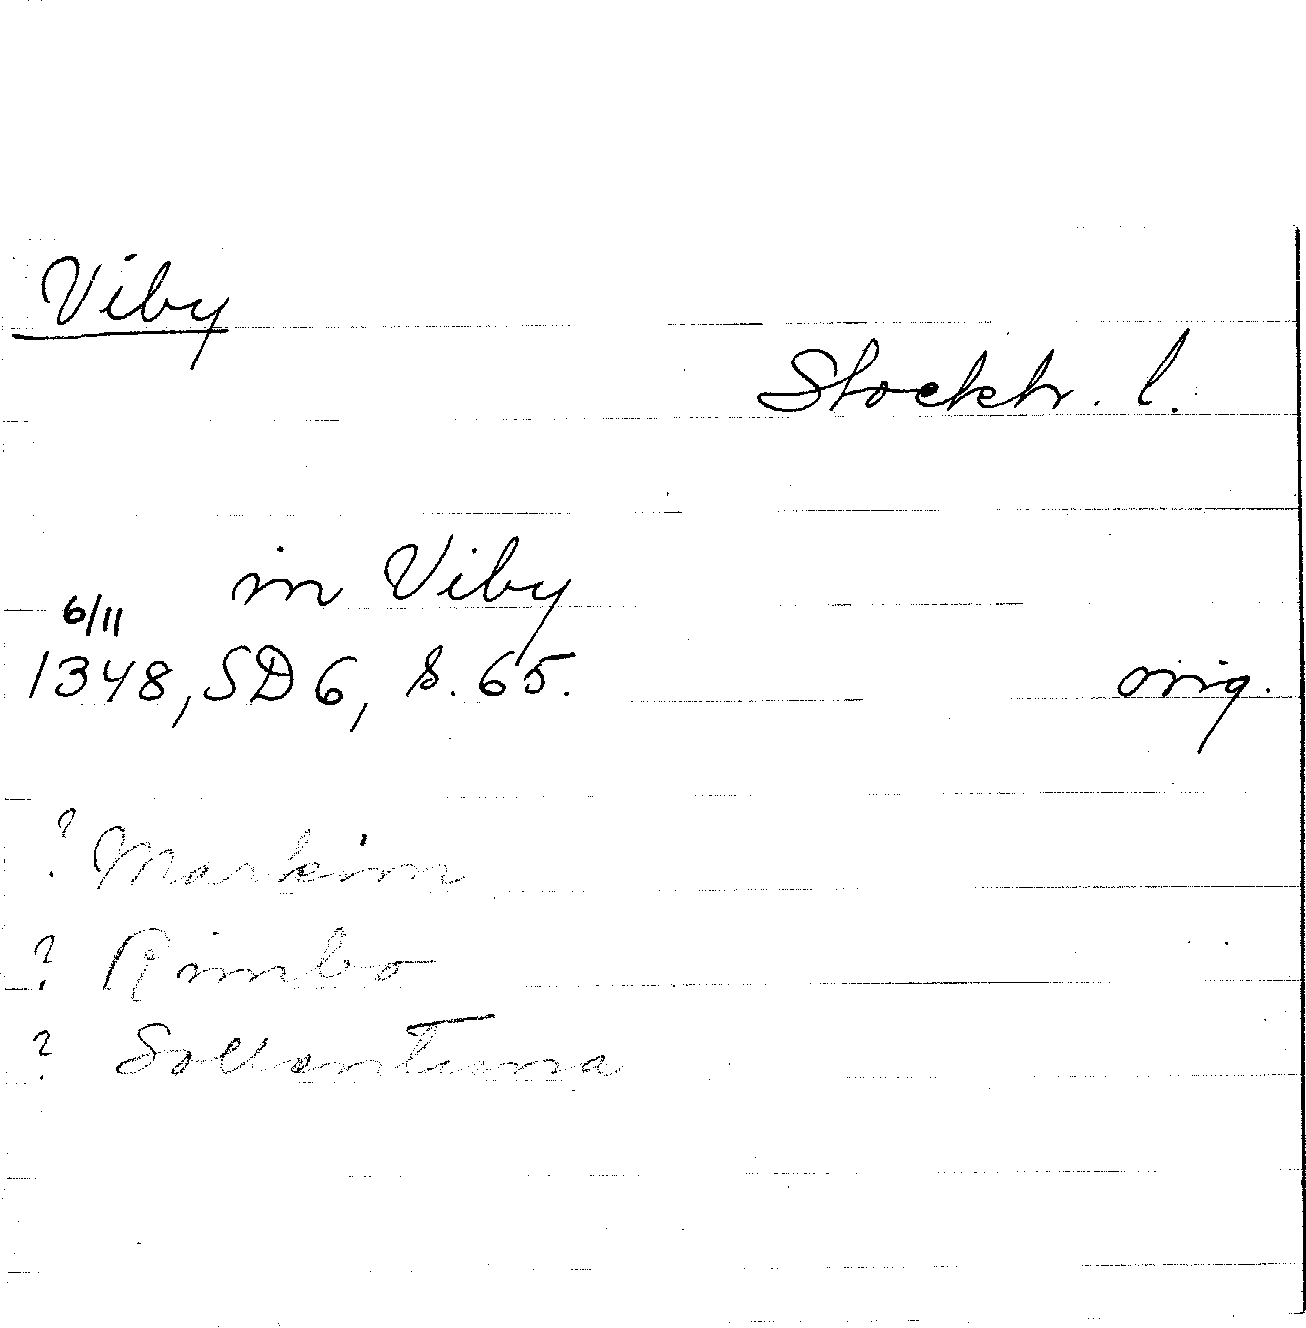 Viby
Stockh. l.
in Viby
6/11
1348, SD 6, s. 65. orig.
? Markim
? Rimbo
? Sollentuna